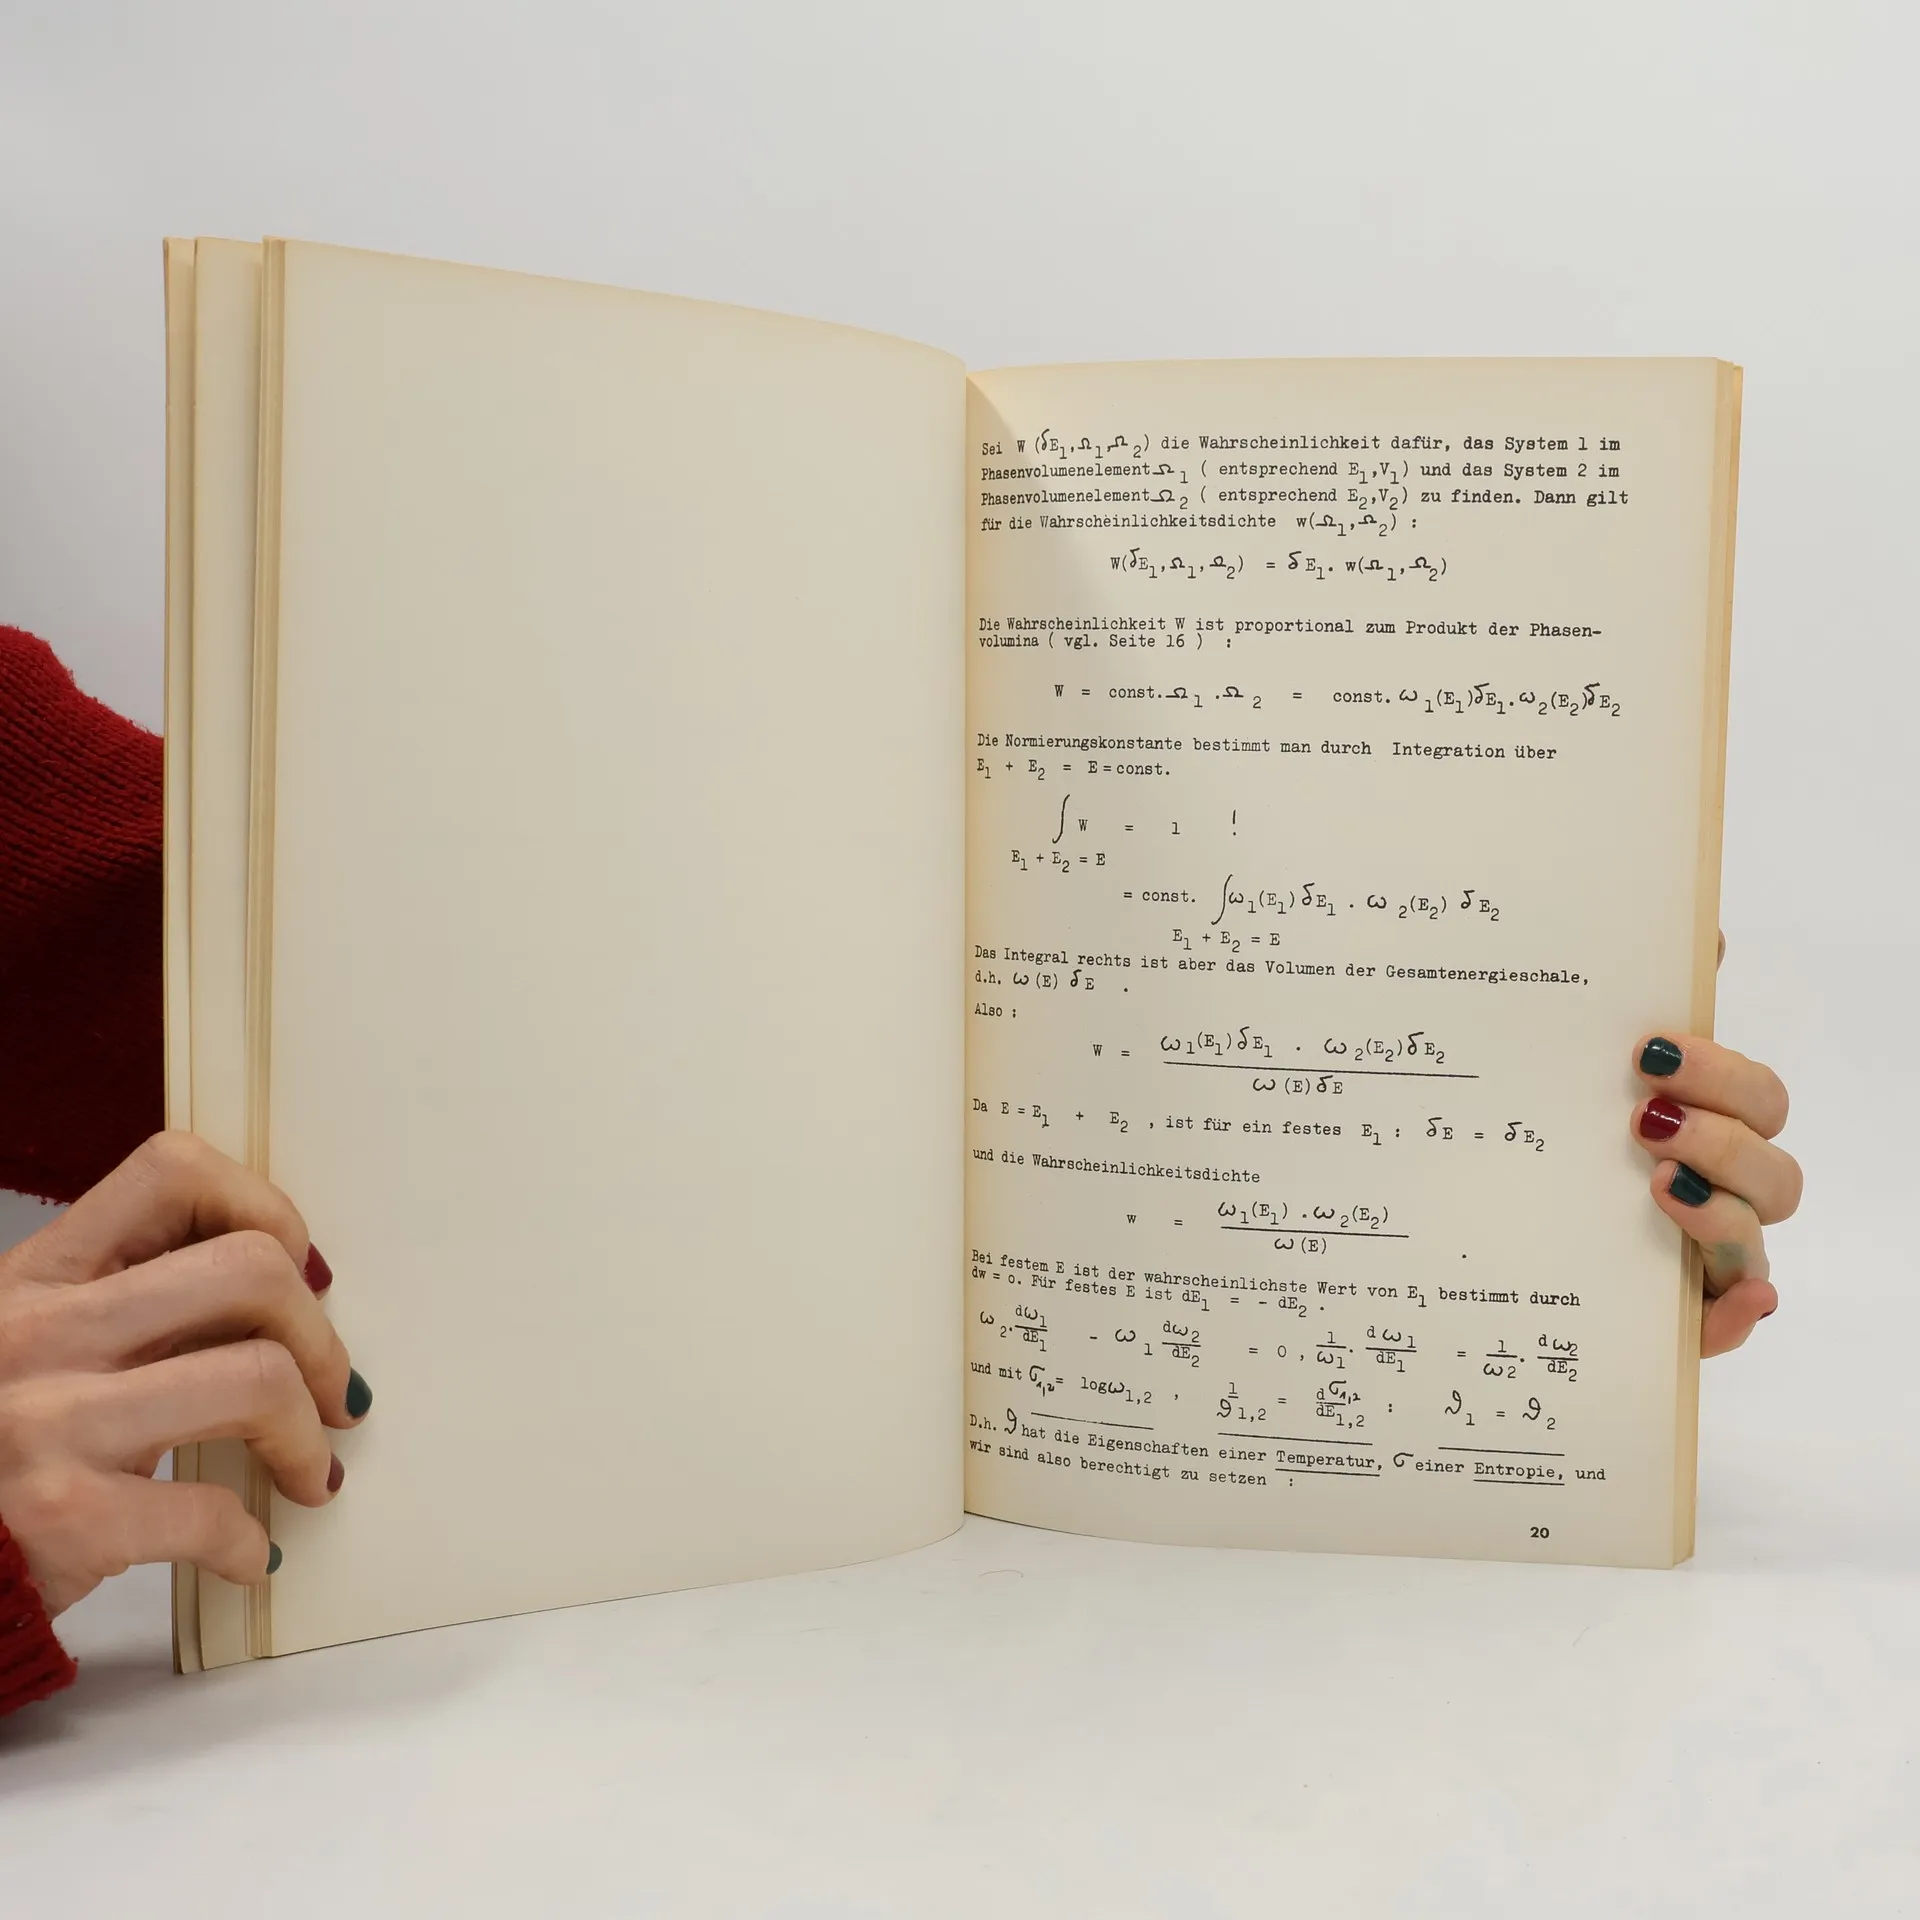 Sei W (δE₁,Ω₁,Ω₂) die Wahrscheinlichkeit dafür, das System 1 im
Phasenvolumenelement Ω₁ ( entsprechend E₁,V₁) und das System 2 im
Phasenvolumenelement Ω₂ ( entsprechend E₂,V₂) zu finden. Dann gilt
für die Wahrscheinlichkeitsdichte w(Ω₁,Ω₂) :
W(δE₁,Ω₁,Ω₂) = δE₁. w(Ω₁,Ω₂)
Die Wahrscheinlichkeit W ist proportional zum Produkt der Phasen-
volumina ( vgl. Seite 16 ) :
W = const.Ω₁ .Ω₂ = const. ω₁(E₁)δE₁.ω₂(E₂)δE₂
Die Normierungskonstante bestimmt man durch Integration über
E₁ + E₂ = E = const.
∫ W = 1 !
E₁ + E₂ = E
= const. ∫ω₁(E₁)δE₁ . ω₂(E₂) δE₂
E₁ + E₂ = E
Das Integral rechts ist aber das Volumen der Gesamtenergieschale,
d.h. ω(E) δE .
Also :
W = ω₁(E₁)δE₁ . ω₂(E₂)δE₂
ω(E)δE
Da E = E₁ + E₂ , ist für ein festes E₁ : δE = δE₂
und die Wahrscheinlichkeitsdichte
w = ω₁(E₁) .ω₂(E₂)
ω(E) .
Bei festem E ist der wahrscheinlichste Wert von E₁ bestimmt durch
dw = o. Für festes E ist dE₁ = - dE₂ .
ω₂. dω₁/dE₁ - ω₁ dω₂/dE₂ = o , 1/ω₁. dω₁/dE₁ = 1/ω₂. dω₂/dE₂
und mit σ₁,₂= logω₁,₂ , 1/ϑ₁,₂ = dσ₁,₂/dE₁,₂ : ϑ₁ = ϑ₂
D.h. ϑ hat die Eigenschaften einer Temperatur, σ einer Entropie, und
wir sind also berechtigt zu setzen :
20